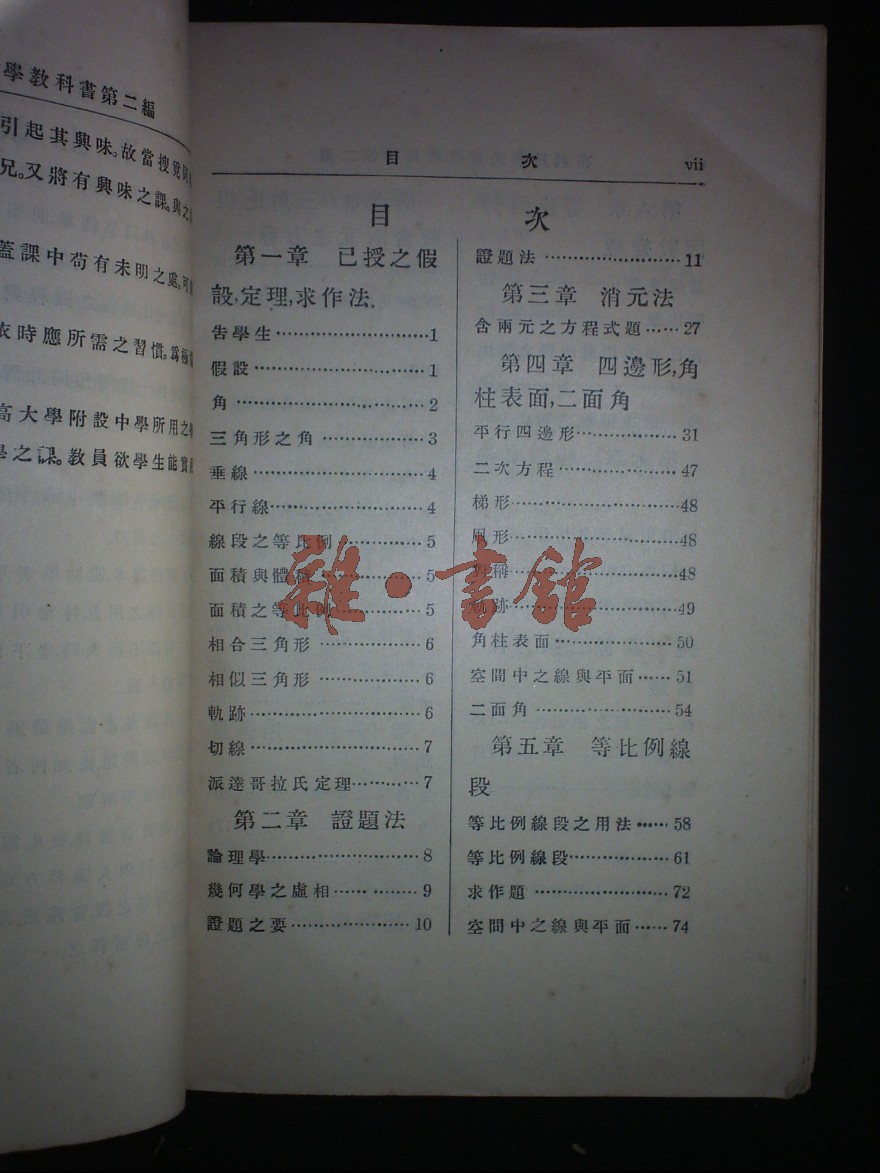 學教科書第二編
引起其興味。故當搜覓
兄。又將有興味之課。與之
蓋課中苟有未明之處。可
依時應所需之習慣。爲極
高大學附設中學所用之
學之課。教員欲學生能實
目 次 vii
目 次
第一章 已授之假
設,定理,求作法.
告學生……………………1
假設………………………1
角…………………………2
三角形之角………………3
垂線………………………4
平行線……………………4
線段之等比例……………5
面積與體積………………5
面積之等比例……………5
相合三角形………………6
相似三角形………………6
軌跡………………………6
切線………………………7
派達哥拉氏定理…………7
第二章 證題法
論理學……………………8
幾何學之虛相……………9
證題之要…………………10
證題法……………………11
第三章 消元法
含兩元之方程式題……27
第四章 四邊形,角
柱表面,二面角
平行四邊形………………31
二次方程…………………47
梯形………………………48
鳳形………………………48
對稱………………………48
軌跡………………………49
角柱表面…………………50
空間中之線與平面……51
二面角……………………54
第五章 等比例線
段
等比例線段之用法……58
等比例線段………………61
求作題……………………72
空間中之線與平面……74
雜·書館